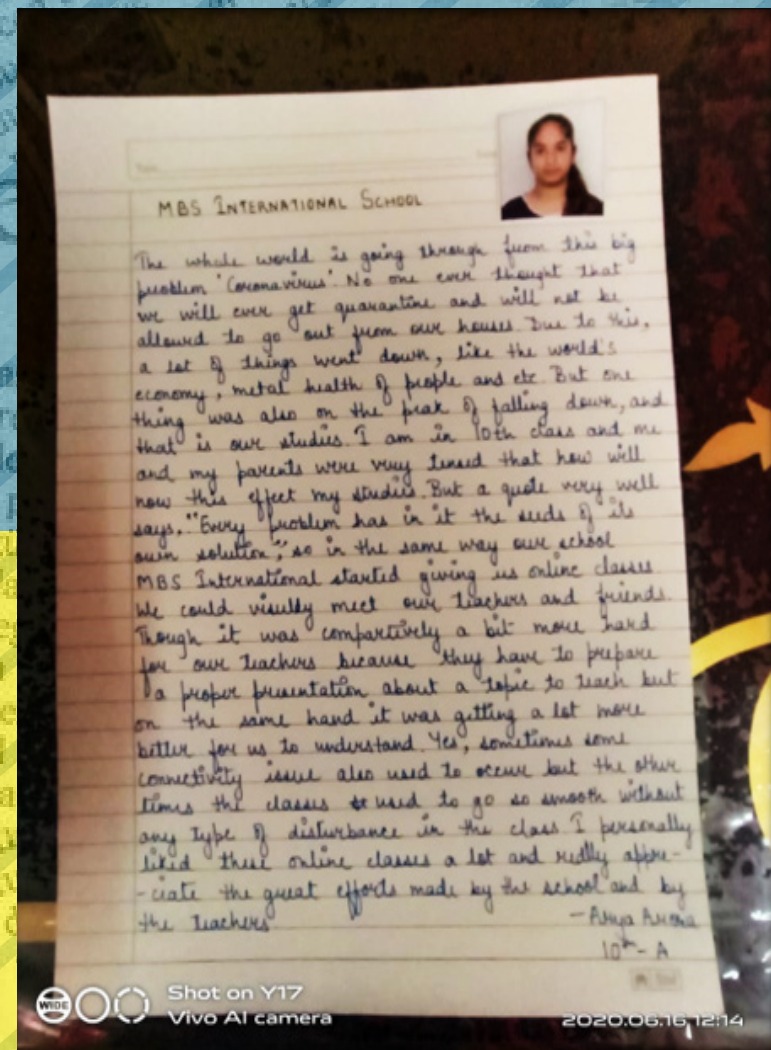 MBS INTERNATIONAL SCHOOL
The whole world is going through from this big
problem 'Coronavirus'. No one ever thought that
we will ever get quarantine and will not be
allowd to go out from our houses. Due to this,
a lot of things went down, like the world's
economy, metal health of people and etc. But one
thing was also on the peak of falling down, and
that is our studies. I am in 10th class and me
and my parents were very tensed that how will
now this effect my studies. But a quote very well
says, "Every problem has in it the seeds of its
own solution", so in the same way our school
MBS International started giving us online classes
We could visully meet our teachers and friends.
Though it was compartively a bit more hard
for our teachers because they have to prepare
a proper presentation about a topic to teach but
on the same hand it was getting a lot more
better for us to understand. Yes, sometimes some
connectivity issue also used to occur but the other
times the classes used to go so smooth without
any type of disturbance in the class. I personally
liked these online classes a lot and really appre-
-ciate the great efforts made by the school and by
the teachers
- Arya Arora
10th - A
WIDE
Shot on Y17
Vivo AI camera
2020.06.16 12:14